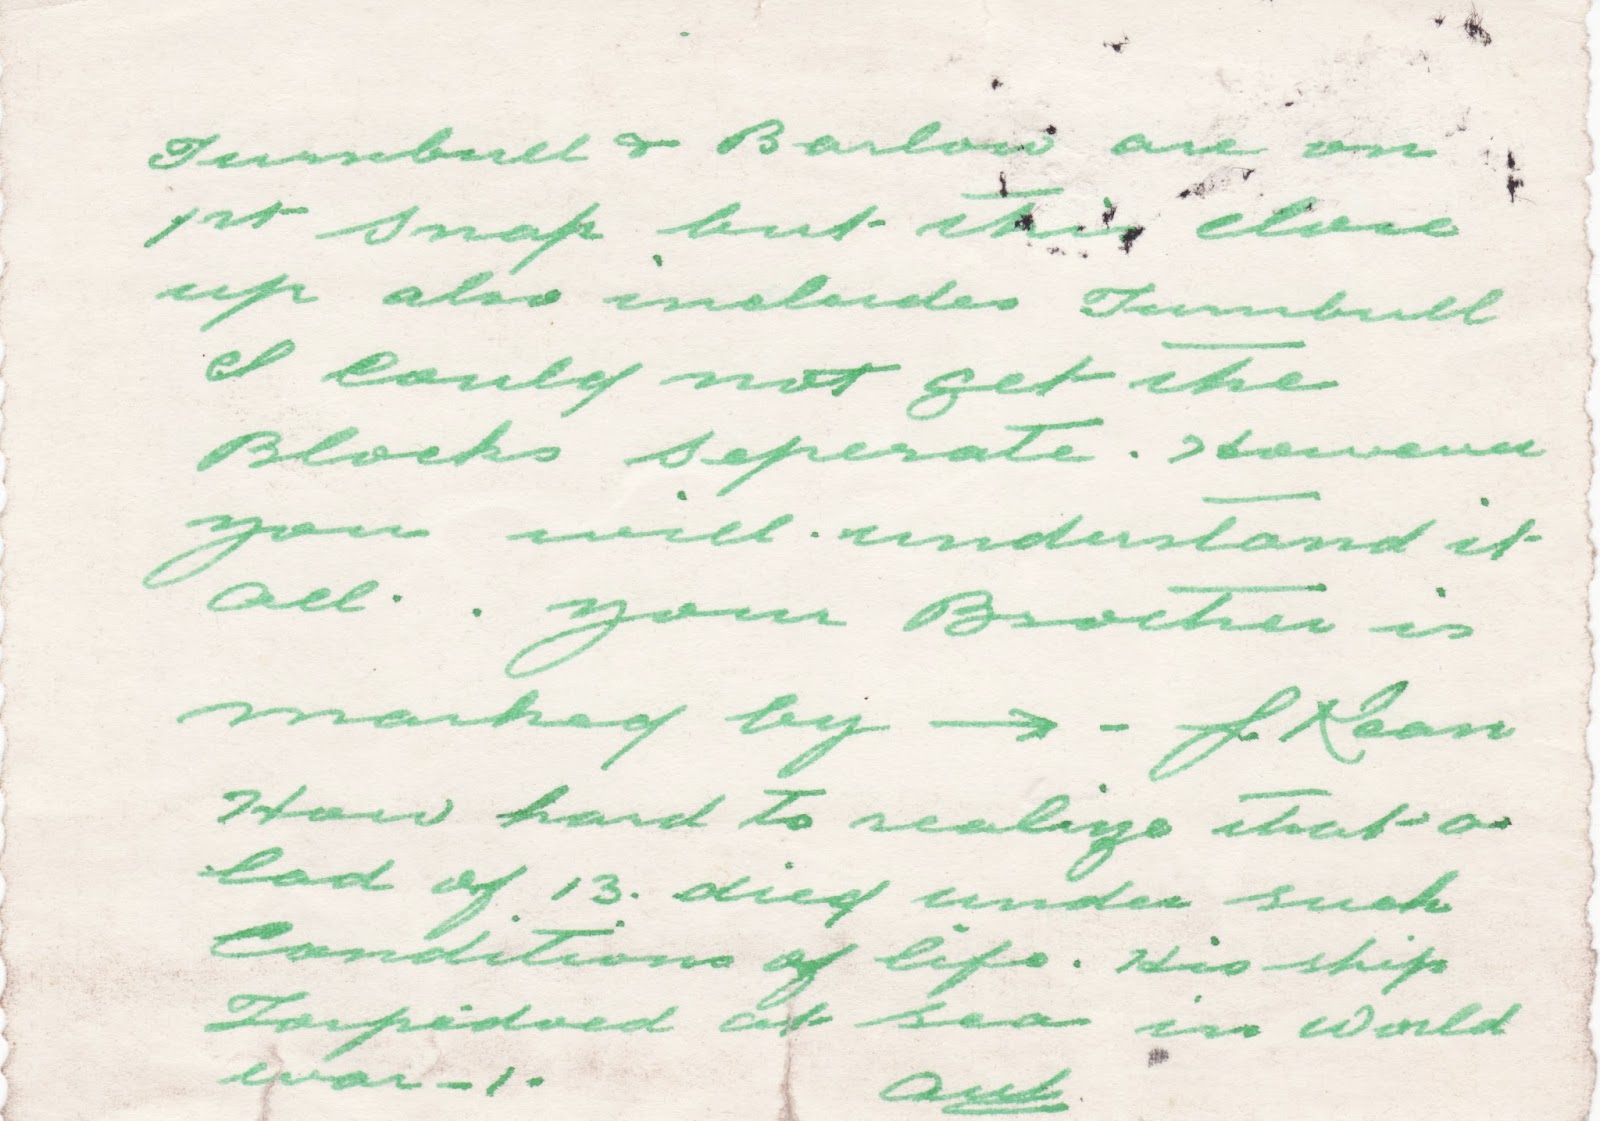 Turnbull & Barlow are on
1st snap but this close
up also includes Turnbull
I Could not get the
Blocks seperate. However
you will understand it
all. . your Brother is
marked by → - J. Kean
How hard to realize that a
lad of 13. died under such
Conditions of life. His ship
Torpedoed at sea in World
war - 1.